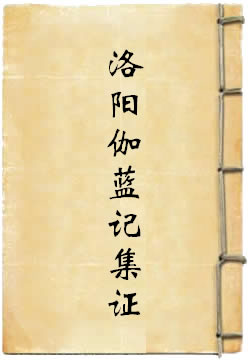 洛阳伽蓝记集证